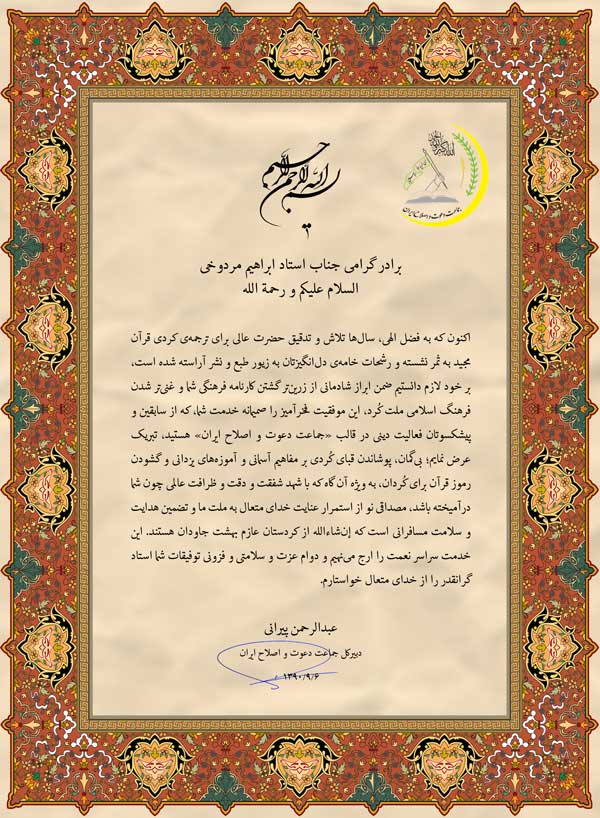 بسم الله الرحمن الرحیم
الله اکبر
جماعت دعوت و اصلاح ایران
برادر گرامی جناب استاد ابراهیم مردوخی
السلام علیکم و رحمة الله
اکنون که به فضل الهی، سال‌ها تلاش و تدقیق حضرت عالی برای ترجمه‌ی کردی قرآن
مجید به ثمر نشسته و رشحات خامه‌ی دل‌انگیزتان به زیور طبع و نشر آراسته شده است،
بر خود لازم دانستیم ضمن ابراز شادمانی از زرین‌تر گشتن کارنامه فرهنگی شما و غنی‌تر شدن
فرهنگ اسلامی ملت کُرد، این موفقیت فخرآمیز را صمیمانه خدمت شما، که از سابقین و
پیشکسوتان فعالیت دینی در قالب «جماعت دعوت و اصلاح ایران» هستید، تبریک
عرض نمایم؛ بی‌گمان، پوشاندن قبای کُردی بر مفاهیم آسمانی و آموزه‌های یزدانی و گشودن
رموز قرآن برای کُردان، به ویژه آن گاه که با شهد شفقت و دقت و ظرافت عالی چون شما
درآمیخته باشد، مصداقی نو از استمرار عنایت خدای متعال به ملت ما و تضمین هدایت
و سلامت مسافرانی است که إن‌شاءالله از کردستان عازم بهشت جاودان هستند. این
خدمت سراسر نعمت را ارج می‌نهیم و دوام عزت و سلامتی و فزونی توفیقات شما استاد
گرانقدر را از خدای متعال خواستارم.
عبدالرحمن پیرانی
دبیرکل جماعت دعوت و اصلاح ایران
۱۳۹۰/۹/۶